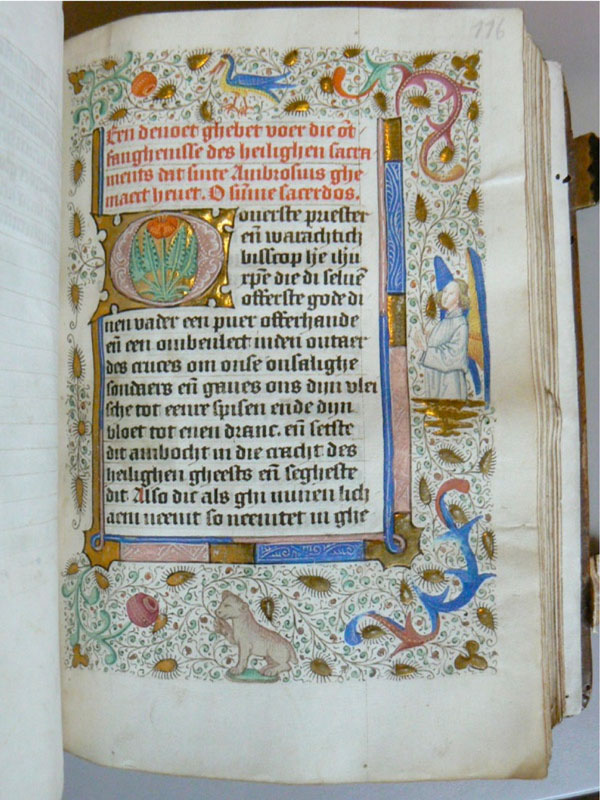 116
Een deuoet ghebet voer die ōt
fanghenisse des heilighen sacra
ments dat sinte Ambrosius ghe
maect heuet. O sūme sacerdos.
Ouerste priester
eñ warachtich
bisscop hē ihū
xpē die di seluē
offerste gode di
nen vader een puer offerhande
eñ een onbeulect inden outaer
des cruces om onse onsalighe
sondaers eñ gaues ons dijn vlei
sche tot eenre spisen ende dijn
bloet tot enen dranc. eñ setste
dit ambocht in die cracht des
heilighen gheests eñ segheste
dit Also dic als ghi minen lich
aem neemt so neemtet in ghe